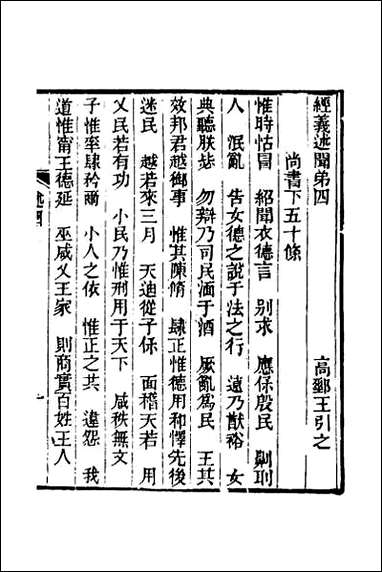 經義述聞弟四　高郵王引之
尚書下五十條
惟時怙冒　紹聞衣德言　别求　應保殷民　劓刵
人　泯亂　告女德之說于法之行　遠乃猷裕　女
典聽朕毖　勿辯乃司民湎于酒　厥亂為民　王其
效邦君越御事　惟其陳脩　肆王惟德用和懌先後
迷民　越若來三月　天迪從子保　面稽天若　用
乂民若有功　小民乃惟刑用于天下　咸秩無文
子惟率肆矜爾　小人之依　惟正之共　違怨　我
道惟甯王德延　巫咸乂王家　則商實百姓王人